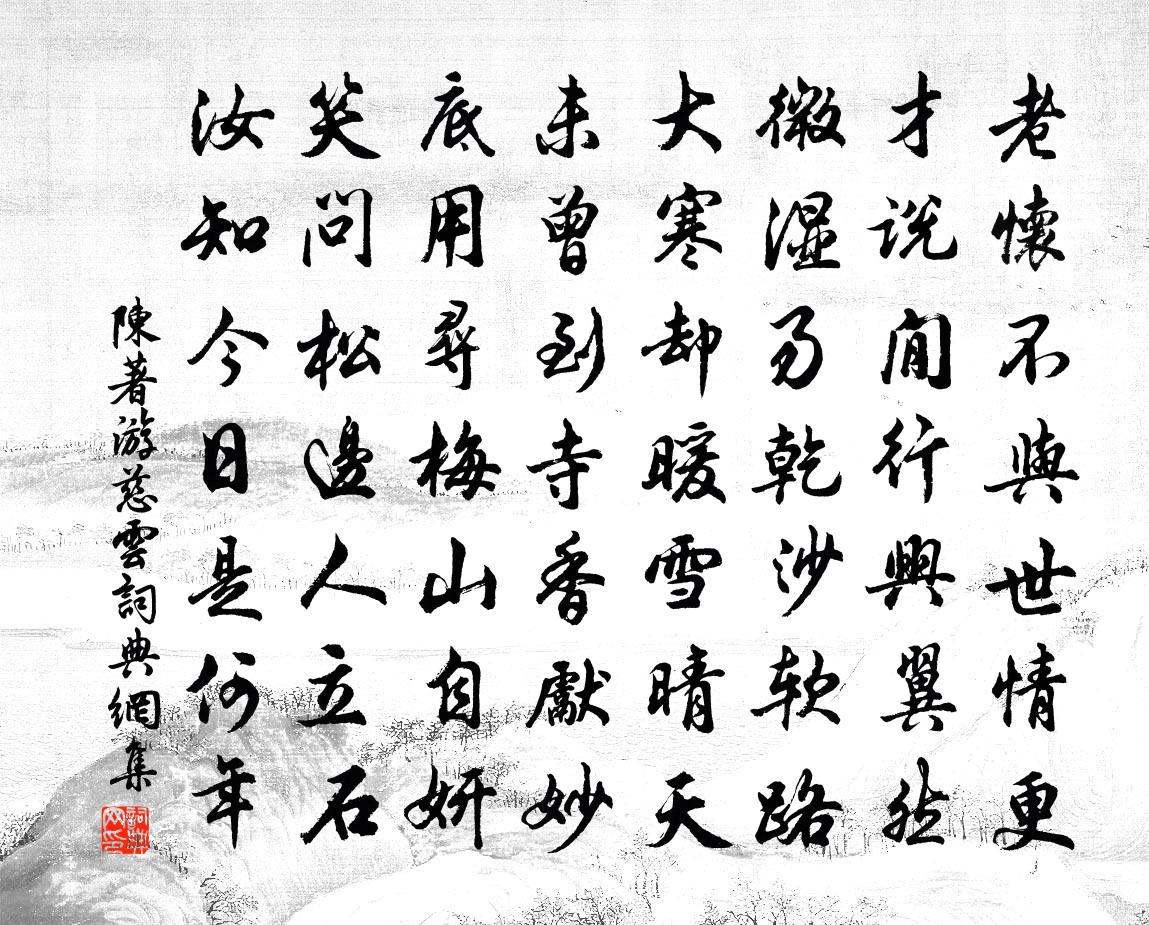 老懷不與世情更
才說閒行興翼然
微湿易乾沙軟路
大寒却暖雪晴天
未曾到寺香獻妙
底用尋梅山自妍
笑問松邊人立石
汝知今日是何年
陳著游慈雲詞典網集